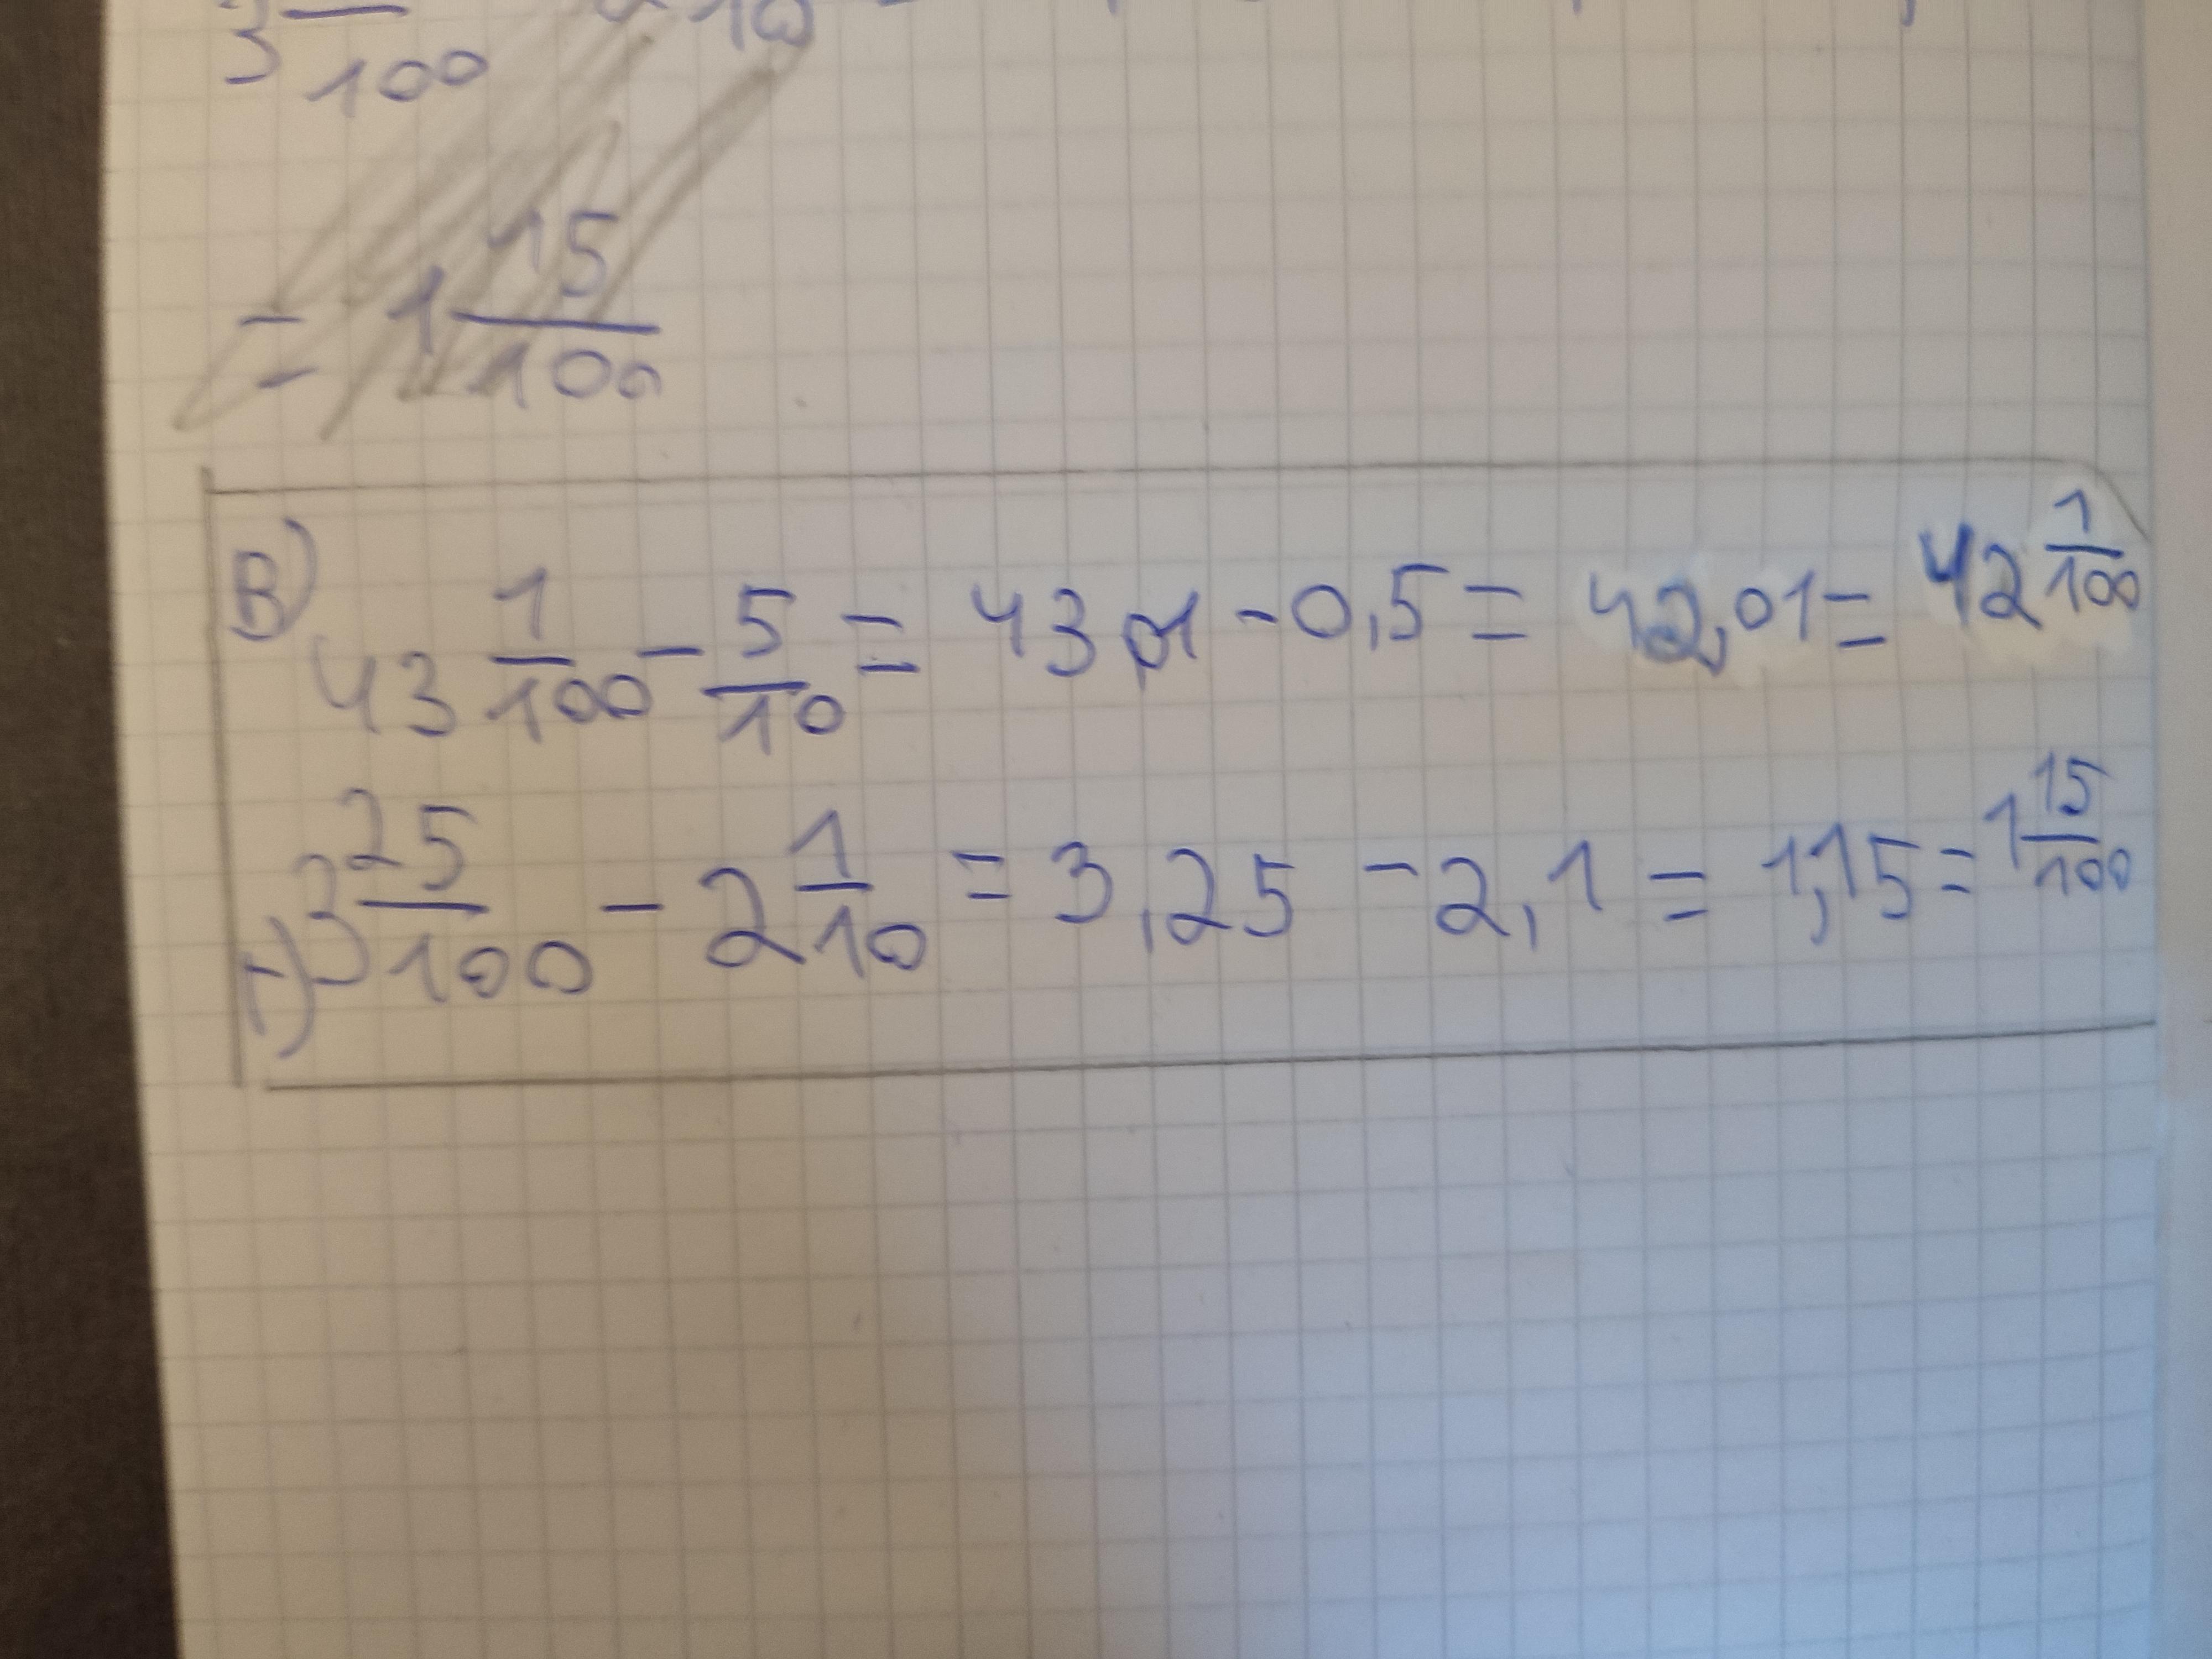 3 —/100 10
= 1 15/100
В) 43 1/100 - 5/10 = 43,01 - 0,5 = 42,01 = 42 1/100
г) 3 25/100 - 2 1/10 = 3,25 - 2,1 = 1,15 = 1 15/100